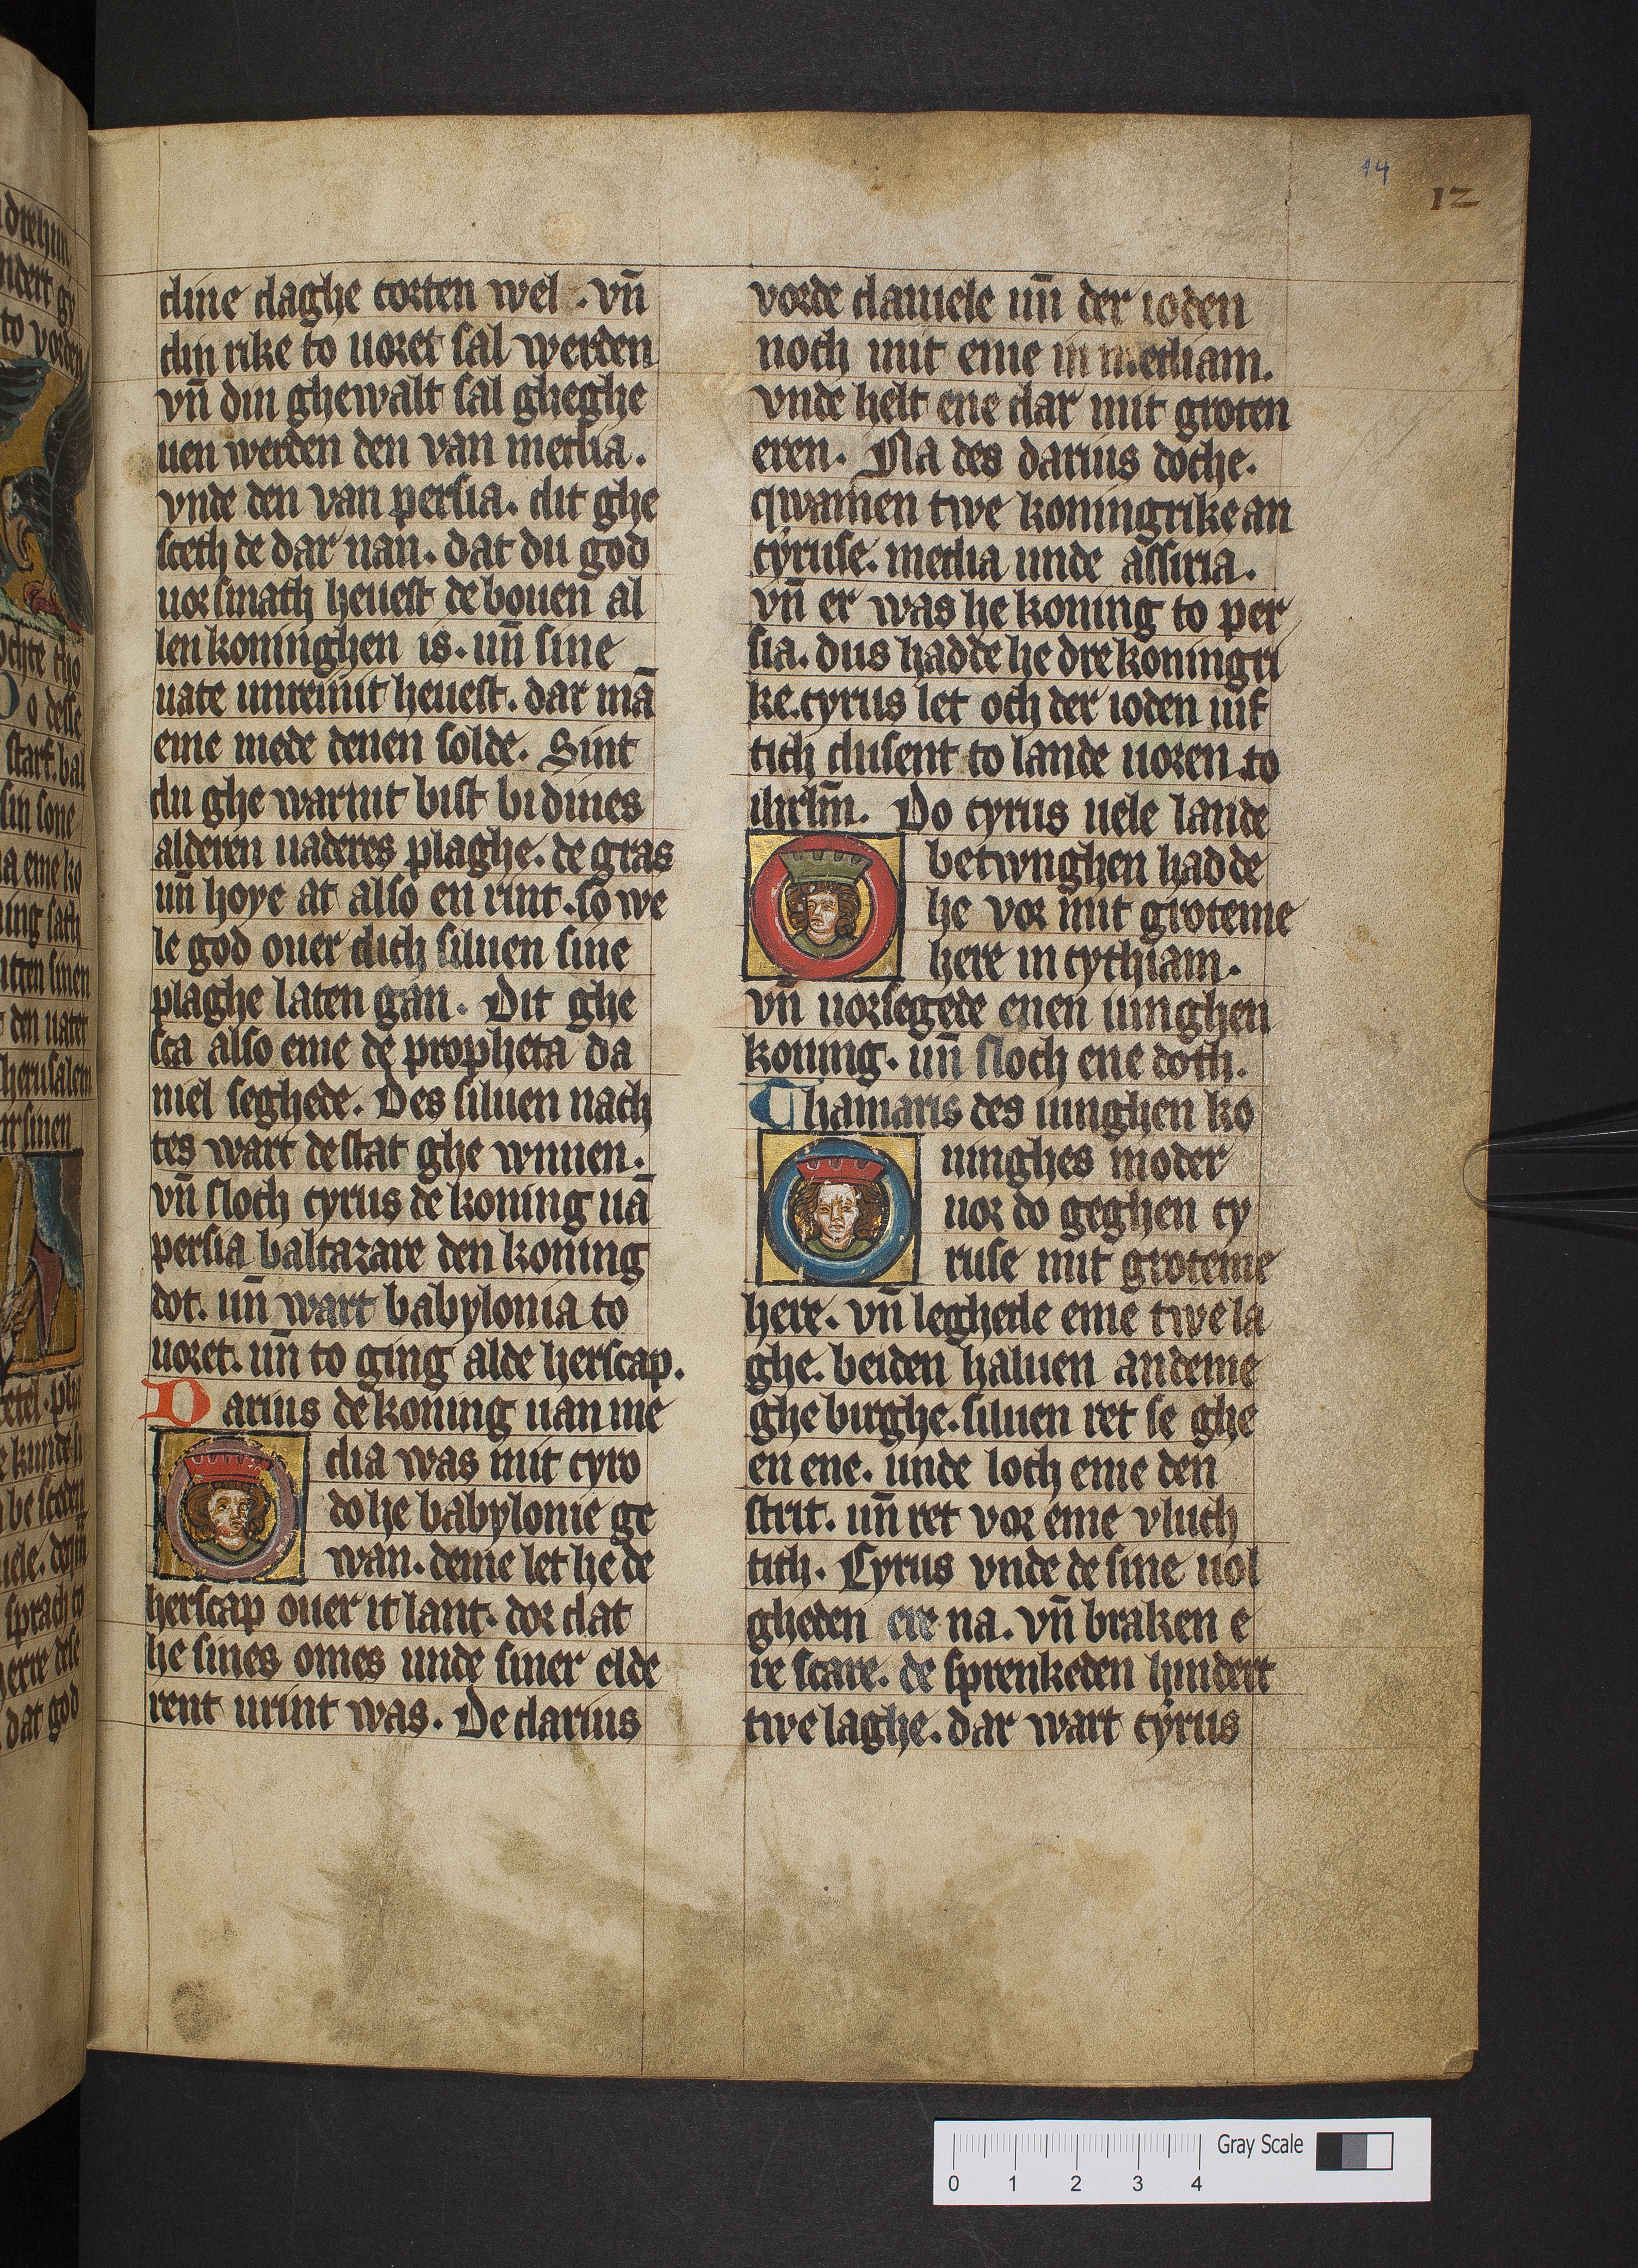 dine daghe corten wel . vn̄
din rike to uoret sal werden
vn̄ din ghewalt sal gheghe
uen werden den van media.
vnde den van persia. dit ghe
sceth de dar uan. dat du god
uorsmath heuest de bouen al
len koninghen is. un̄ sine
uate unreinit heuest. dar mā
eme mede denen solde. Sint
du ghe warnit bist bi dines
alderen uaderes plaghe. de gras
un̄ hoye at also en rint. so we
le god ouer dich siluen sine
plaghe laten gan. Dit ghe
sca also eme de propheta da
niel seghede. Des siluen nach
tes wart de stat ghe wnnen.
vn̄ sloch cyrus de koning uā
persia baltazare den koning
dot. un̄ wart babylonia to
uoret. un̄ to ging alde herscap.
Darius de koning uan me
dia was mit cyro
do he babylonie ge
wan. deme let he de
herscap ouer it lant. dor dat
he sines omes unde siner elde
rent urint was. De darius
14
12
vorde daniele un̄ der ioden
noch mit eme in mediam.
vnde helt ene dar mit groten
eren. Na des darius dothe.
qwamen twe koningrike an
cyruse. media unde assiria.
vn̄ er was he koning to per
sia. dus hadde he dre koningri
ke. cyrus let och der ioden uif
tich dusent to lande uoren to
ihrlm̄. Do cyrus uele lande
betwnghen hadde
he vor mit groteme
here in cythiam.
vn̄ uorsegede enen iunghen
koning. un̄ sloch ene doth.
Thamaris des iunghen ko
ninghes moder
uor do geghen cy
ruse mit groteme
here. vn̄ leghede eme twe la
ghe. beiden haluen an deme
ghe birghe. siluen ret se ghe
en ene. unde loch eme den
strit. un̄ ret vor eme vluch
tith. Cyrus vnde de sine uol
gheden ere na. vn̄ braken e
re scare. de sprenkeden hindert
twe laghe. dar wart cyrus
0 1 2 3 4
Gray Scale